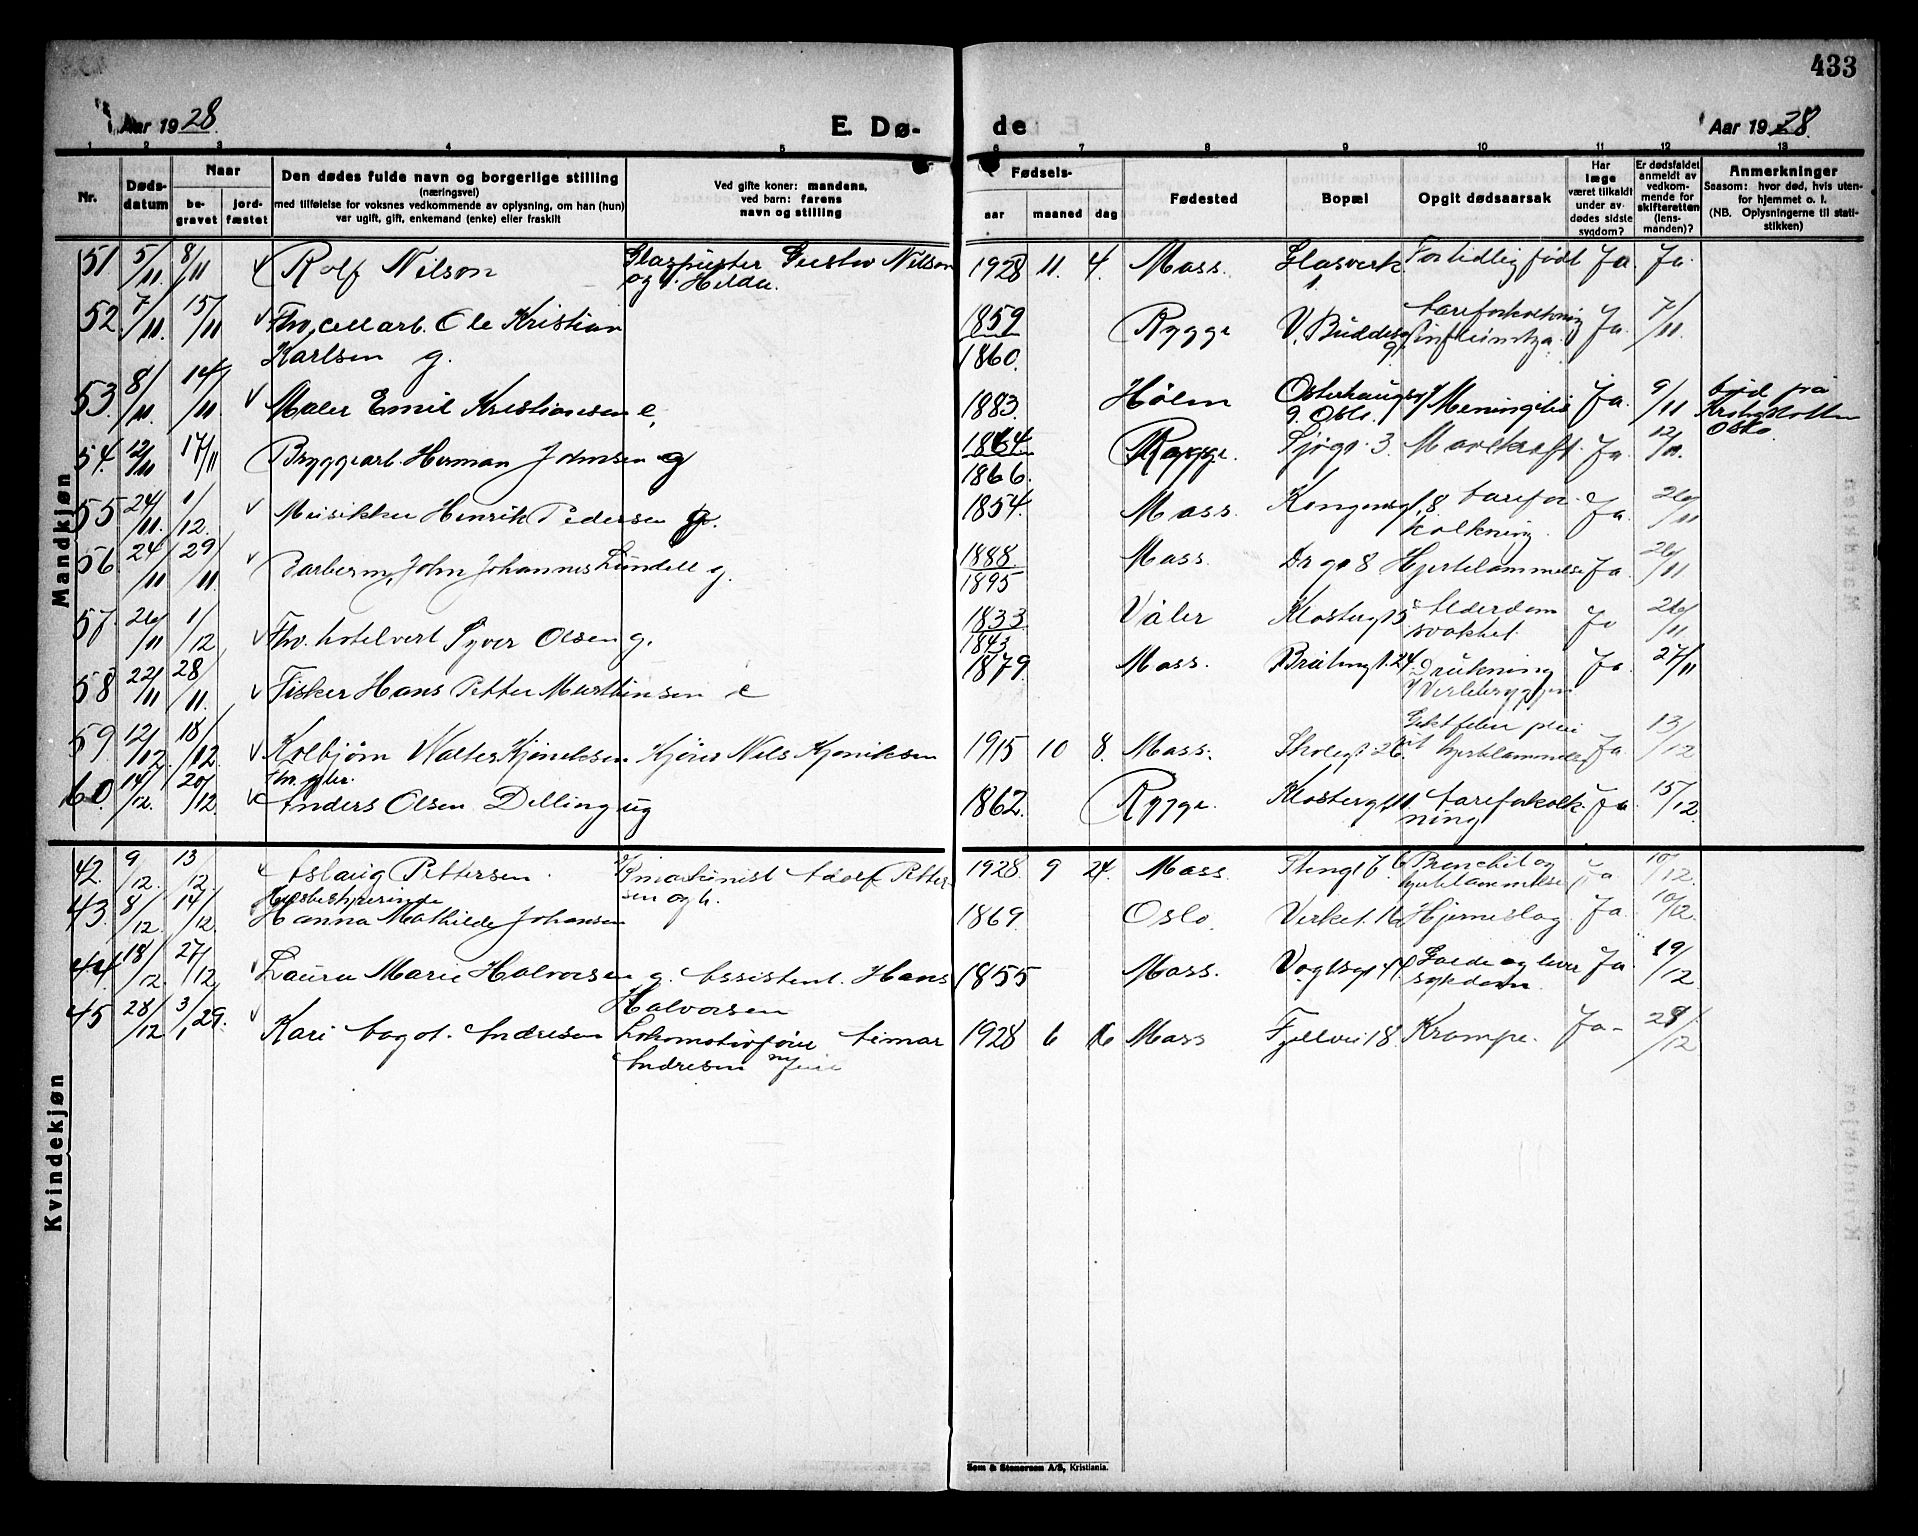 433
Aar 1928.
E. Dø-
de
Aar 1928.
1 2 3 4 5 6 7 8 9 10 11 12 13
Nr.
Døds-
datum
Naar
be-
gravet
jord-
fæstet
Den dødes fulde navn og borgerlige stilling
(næringsvei)
med tilføielse for voksnes vedkommende av oplysning, om han (hun)
var ugift, gift, enkemand (enke) eller fraskilt
Ved gifte koner: mandens,
ved barn: farens
navn og stilling
Fødsels-
aar maaned dag
Fødested
Bopæl
Opgit dødsaarsak
Har
læge
været tilkaldt
under av-
dødes sidste
sygdom?
Er dødsfaldet
anmeldt av
vedkom-
mende for
skifteretten
(lens-
manden)?
Anmerkninger
Saasom: hvor død, hvis uten-
for hjemmet o. l.
(NB. Oplysningerne til stati-
stikken)
Mandkjøn
51 5/11 8/11 Rolf Nilson Glaspuster Gustav Nilson 1928 11 4. Moss. Glasverk For tidlig født Ja. Ja.
og Hilda.
52 7/11. 15/11 Fhv. cellarb. Ole Kristian 1859 Rygge V. Buddesgt Aareforkalkning Ja. 7/11.
Karlsen g. 1860. influintza.
53. 8/11. 14/11 Maler Emil Kristiansen e. 1883. Hølen Osterhausgt Meningitis Ja. 9/11
9. Oslo.
Oslo.
54. 12/11 17/11 Bryggearb. Herman Johnsen g 1864. Rygge. Sjøgt. 3. Mavekræft. Ja. 12/11.
1866.
55 24/11. 1/12. Musikker Henrik Pedersen g. 1854. Moss. Kongensgt. 8. Aarefor- Ja. 26/11
kalkning.
56 24/11 29/11 Barberm. John Johannes Lundell g. 1888. Moss. Dr gt 8 Hjertelammelse Ja. 26/11
1895
57. 26/11 1/12 Fhv. hotelvert Syver Olsen g. 1833 Våler Klostergt 5 Alderdom Ja 26/11
1843 svakhet.
58 22/11 28/11. Fisker Hans Petter Martinsen e 1879. Moss. 24. Drukning Ja. 27/11
59. 12/12. 18/12 Kolbjørn Walter Kjøniksen Nils Kjøniksen 1915 10 8. Moss. Skolegt 26. Ja. 13/12
hjertelammelse
60. 14/12. 20/12
Anders Olsen Dilling ug 1862. Rygge. Klostergt 11. Aareforkalk- Ja. 15/12.
ning
Kvindekjøn
42. 9/12. 13/12 Aslaug Pettersen. Adolf Petter- 1928. 9 24. Moss. Bronchit og Ja 10/12.
sen og h. hjertelammelse
43. 8/12. 14/12. Husbestyrerinde
Hanna Mathilde Johansen 1869. Oslo. Verket. 16 Hjerneslag Ja. 10/12.
44. 18/12. 27/12 Laura Marie Halvorsen g. Assistent. Hans 1855 Moss. Vogtsgt 44 Galde og lever Ja. 19/12
Halvorsen sykdom.
45 28/12 3/1 29. Kari Aagot. Andresen Lokomotivfører Aimar 1928 6 16 Moss Fjellvei 18 Krampe. Ja - 29/12
Andresen
Sem & Stenersen A/S, Kristiania.